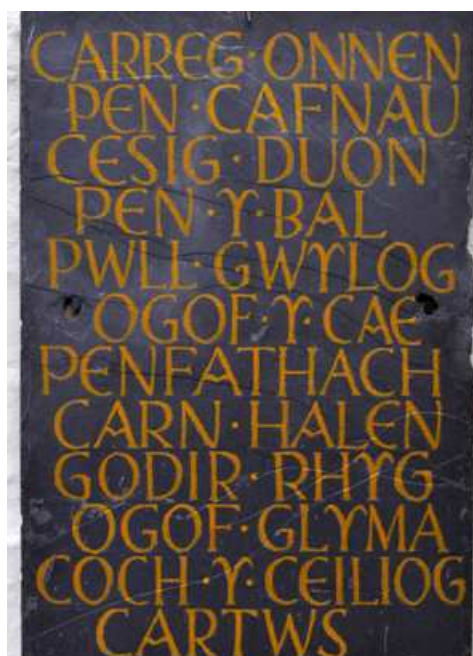 CARREG · ONNEN
PEN · CAFNAU
CESIG · DUON
PEN · Y · BAL
PWLL · GWYLOG
OGOF · Y · CAE
PENFATHACH
CARN · HALEN
GODIR · RHYG
OGOF · GLYMA
COCH · Y · CEILIOG
CARTWS